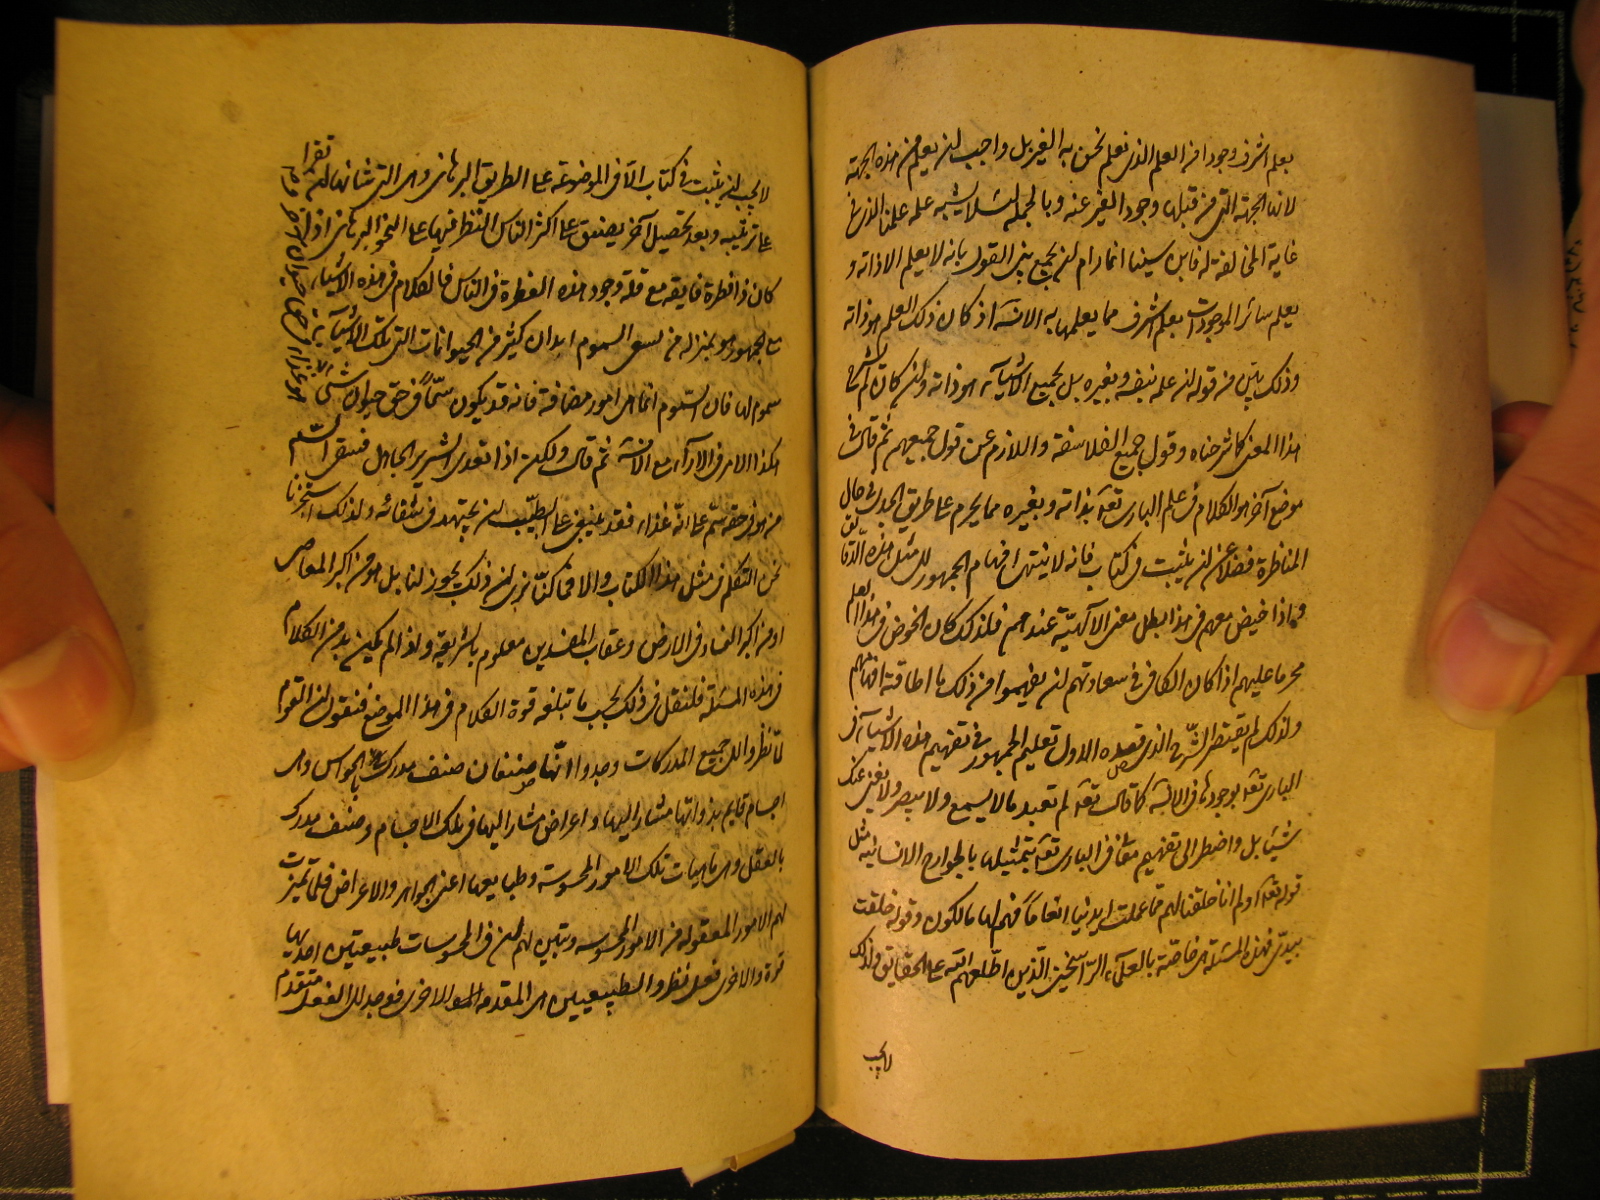 يعلم اشرف وجودا من العلم الذى نعلم نحن به الغير بل واجب لن يعلم من هذه الجهة
لانها الجهة التى من قبلها وجود الغير عنه وبالجملة لئلا يشبه علمه علمنا الذى فى
غاية المخالفة له فابن سينا انما رام لن يجمع بين القول بانه لا يعلم الا ذاته و
يعلم سائر الموجودات بعلم اشرف مما يعلمها به الانسان اذ كان ذلك العلم هو ذاته
وذلك بين من قوله لن علمه بنفسه وبغيره بل بجميع الاشياء هو ذاته ولن كان لم يشرح
هذا المعنى كما شرحناه وقول جميع الفلاسفة واللازم عن قول جميعهم ثم قال فى
موضع آخر هو الكلام فى علم البارى تعه بذاته وبغيره مما يحرم على طريق الجدل فى حال
المناظرة فضلا عن لن يثبت فى كتاب فانه لا ينتهى افهام الجمهور الى مثل هذه الدقائق
واذا خيض معهم فى هذا بطل معنى الالهية عندهم فلذلك كان الخوض فى هذا العلم
محرما عليهم اذا كان الكافى فى سعادتهم لن يفهموا من ذلك ما اطاقته افهامهم
ولذلك لم يقتصر الشرع الذى قصده الاول تعليم الجمهور فى تفهيم هذه الاشياء فى
البارى تعه بوجودها فى الانسان كما قال تعه لم تعبد ما لا يسمع ولا يبصر ولا يغنى عنك
شيئا بل واضطر الى تفهيم معان فى البارى تعه بتمثيلها بالجوارح الانسانية مثل
قوله تعه او لم انا خلقنا لهم مما عملت ايدينا انعاماً فهم لها مالكون وقوله خلقت
بيدىّ فهذه المسئلة هى خاصة بالعلماء الراسخين الذين اطلعهم الله على الحقائق ولذلك
لا يجب
لا يجب لن يثبت فى كتاب الا فى الموضوعة على الطريق البرهانى وهى التى شانها لن تقرا
على ترتيب وبعد تحصيل آخر يضيق على اكثر الناس النظر فيها على النحو البرهانى اذا
كان ذا فطرة فايقه مع قلة وجود هذه الفطرة فى الناس فالكلام فى هذه الاشياء
مع الجمهور هو بمنزله من يسقى السموم ابدان كثير من الحيوانات التى تلك الاشياء
سموم لها فان السموم انما هى امور مضافة فانه قد يكون سمّاً فى حق حيوان شئ
هو غذاء فى حق حيوان آخر
هكذا الامر فى الاراء مع الانسان ثم قال ولكن اذا تعدى الشرير الجاهل فسقى السّم
من هو فى حقه سم على انه غذاء فقد ينبغى على الطبيب لن يجتهد فى شفائه ولذلك استجزنا
نحن التكلم فى مثل هذا الكتاب والا فما كنا نرى لن ذلك يجوز لنا بل هو من اكبر المعاصى
او من اكبر الفساد فى الارض وعقاب المفسدين معلوم بالشريعة واذ لم يكن بد من الكلام
فى هذه المسئلة فلنقل فى ذلك بحسب ما تبلغه قوة الكلام فى هذا الموضع فنقول لن القوم
لمّا نظروا الى جميع المدركات وجدوا انها صنفان صنف مدرك بالحواس وهى
اجسام قايمه بذواتها مشار اليها واعراض مشار اليها فى تلك الاجسام وصنف مدرك
بالعقل وهى ماهيات تلك الامور المحسوسة وطبايعها اعنى الجواهر والاعراض فلما تميزت
لهم الامور المعقوله من الامور المحسوسه وتبين لهم لن فى المحسوسات طبيعتين احديها
قوة والاخرى فعل نظروا اى الطبيعتين هى المقدمه على الاخرى فوجد ان الفعل متقدم